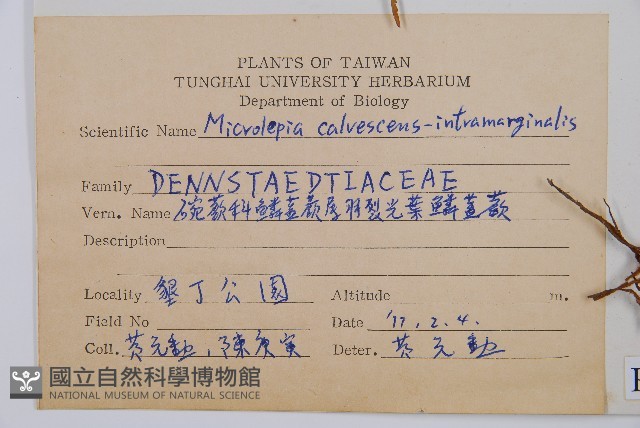 PLANTS OF TAIWAN
TUNGHAI UNIVERSITY HERBARIUM
Department of Biology
Scientific Name Microlepia calvescens-intramarginalis
Family DENNSTAEDTIACEAE
Vern. Name 碗蕨科鱗蓋蕨屬羽裂光葉鱗蓋蕨
Description
Locality 墾丁公園 Altitude m.
Field No Date '77.2.4.
Coll. 黃元勳,陳庚寅 Deter. 黃元勳
國立自然科學博物館
NATIONAL MUSEUM OF NATURAL SCIENCE